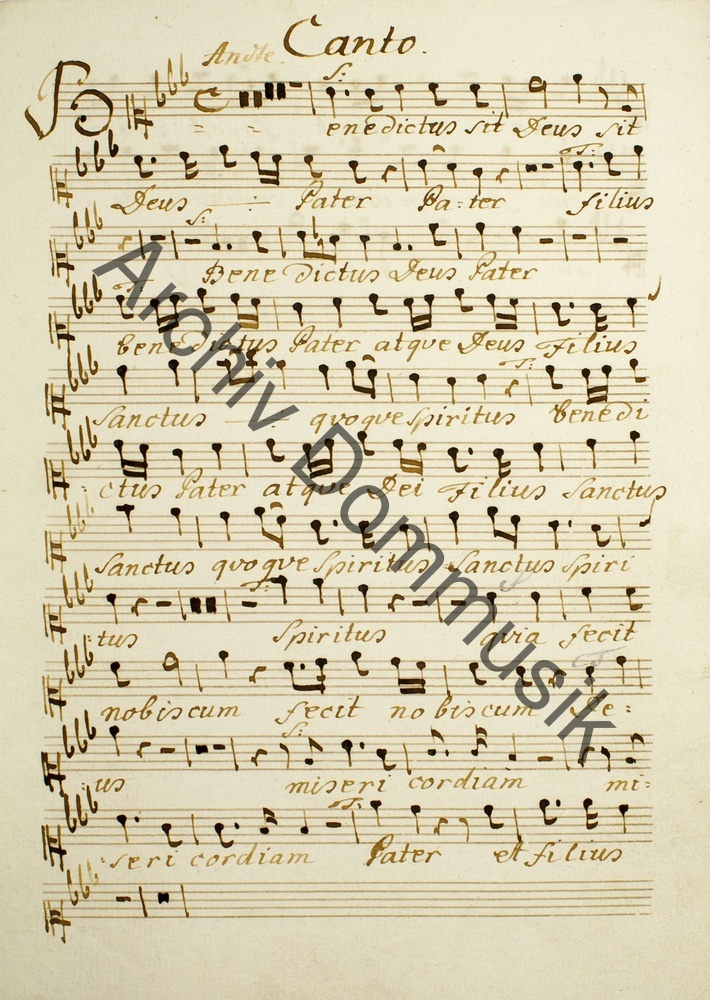 Canto.
Andte.
S:
Benedictus sit Deus sit
T:
Deus Pater Pa-ter filius
S:
Benedictus Deus Pater
T:
benedictus Pater atque Deus Filius
T:
Sanctus quoque Spiritus benedi
ctus Pater atque Dei Filius Sanctus
Sanctus quoque Spiritus Sanctus Spiri
S
tus Spiritus quia fecit
T:
nobiscum fecit nobiscum De:
S:
us miseri cordiam mi:
T:
seri cordiam Pater et filius
Archiv Dommusik